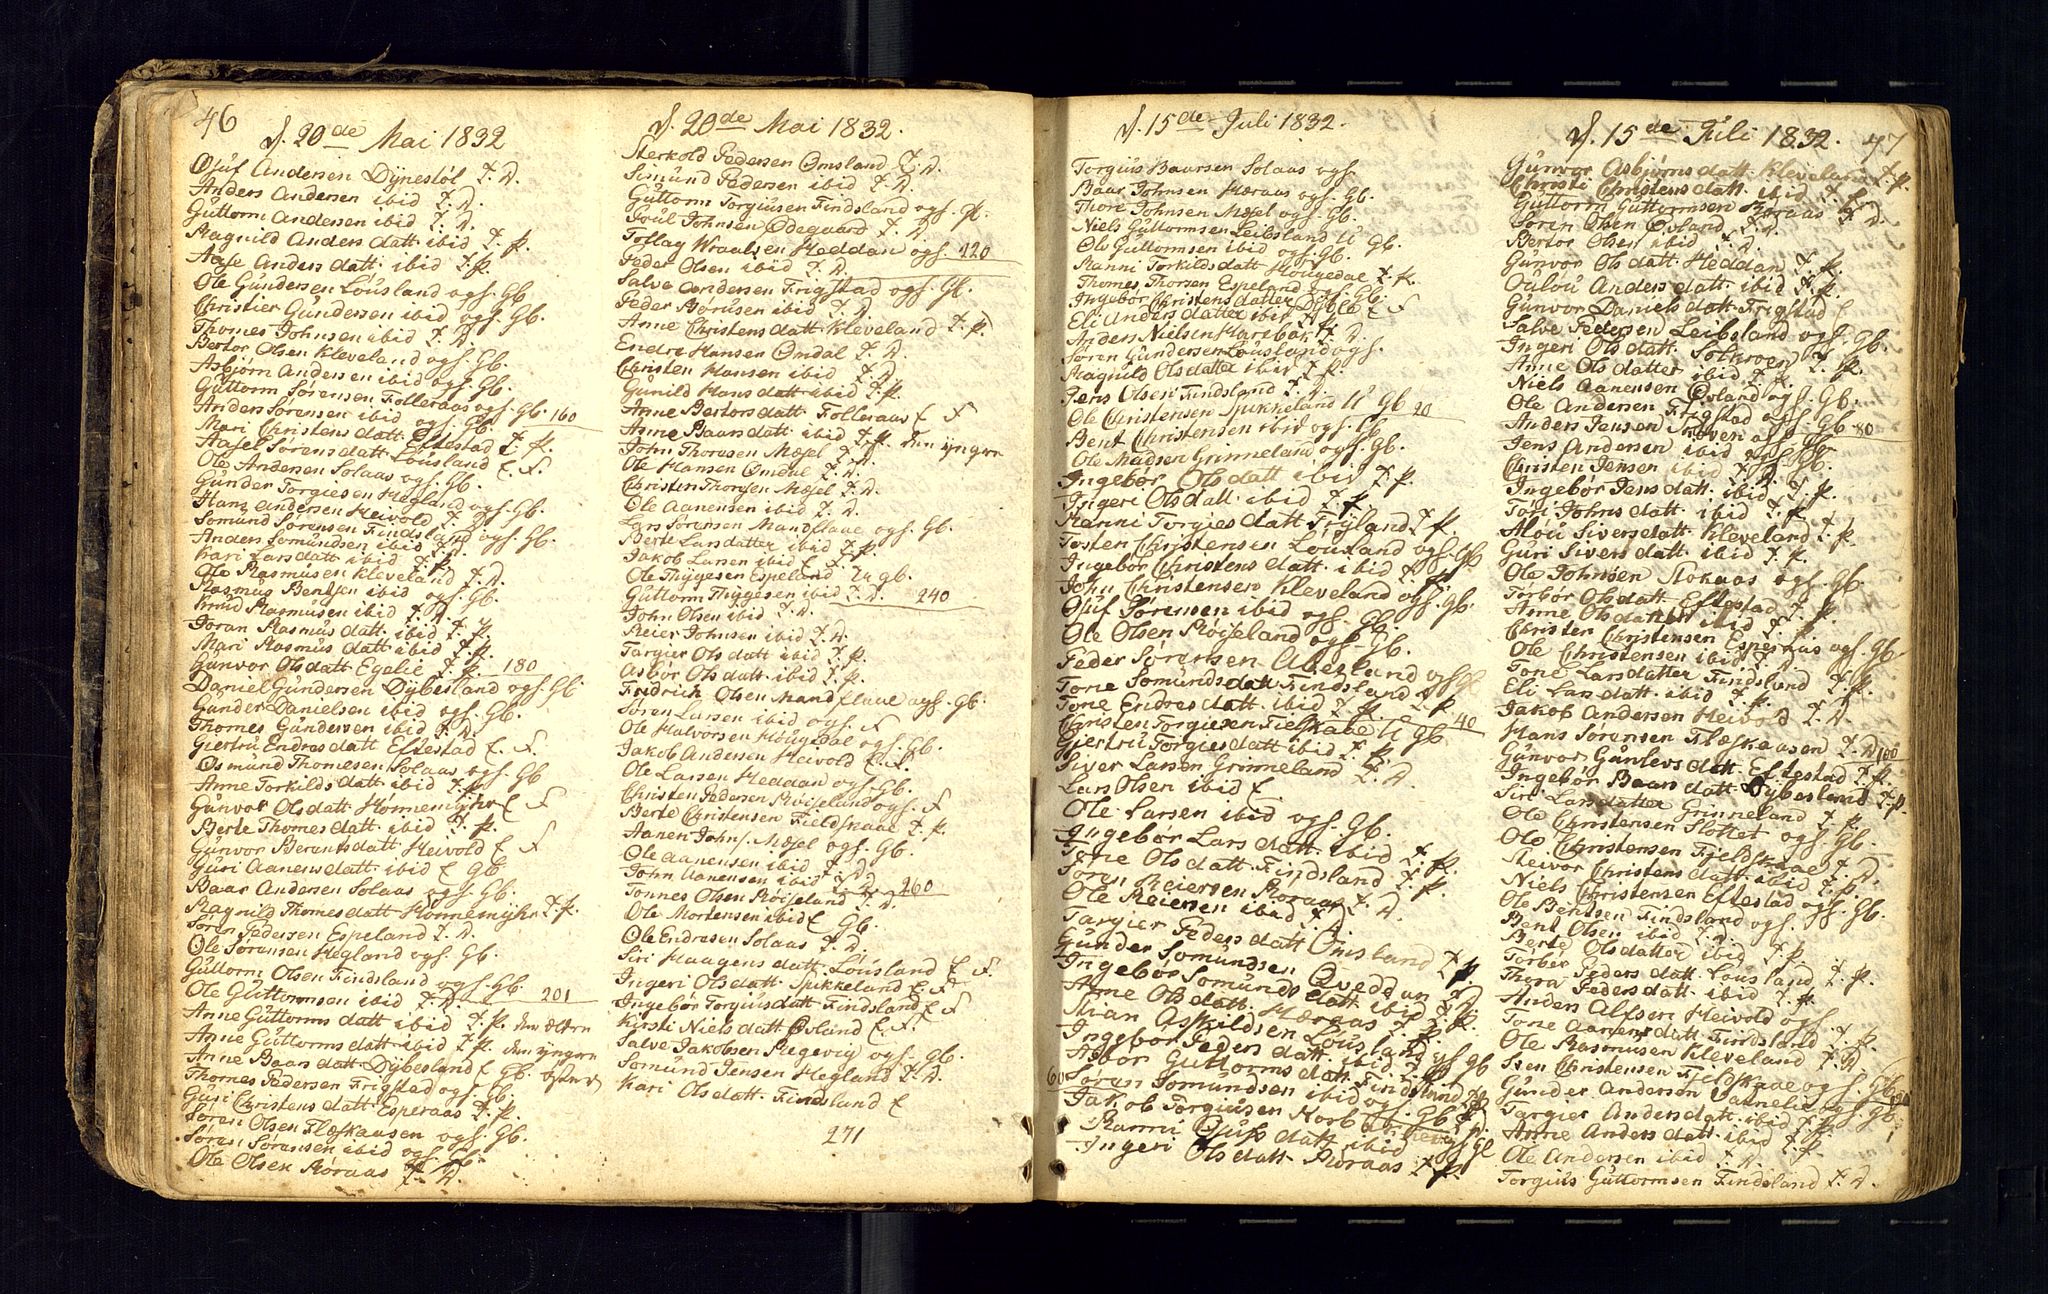 46
d. 20de Mai 1832
Oluf Andersen Dynestøl J. D.
Anders Andersen ibid J. D.
Guttorm Andersen ibid J. D.
Ragnild Anders datt ibid J. P.
Aase Anders datt. ibid J. P.
Ole Gundersen Lousland og H. Gb.
Christier Gundersen ibid og H. Gb.
Thomes Johnsen ibid J. D.
Bertor Olsen Kleveland og H. Gb.
Asbjørn Andersen ibid og H. Gb.
Guttorm Sørensen Folleraas og H. Gb. 160
Anders Sørensen ibid og H. Gb.
Mari Christens datt. Eftestad J. P.
Aasel Sørens datt. Lousland E. F.
Ole Andersen Solaas og H. Gb.
Gunder Torgiesen Hegland og H. Gb.
Hans Andersen Heivold J. D.
Somund Sørensen Findsland og H. Gb.
Anders Somundsen ibid J. D.
Kari Lars datt. ibid J. P.
Ole Rasmusen Kleveland J. D.
Rasmus Bentsen ibid og H. Gb.
Knud Rasmusen ibid J. D.
Joran Rasmus datt. ibid J. P.
Mari Rasmus datt. ibid J. P.
Gunvor Ols datt. Egelie J. P. 180
Daniel Gundersen Dybesland og H. Gb
Gunder Danielsen ibid og H. Gb.
Thomes Gundersen ibid J. D.
Giertru Endres datt Eftestad E. F.
Osmund Thomesen Solaas og H. Gb
Anne Torkilds datt. ibid J. P.
Gunvor Ols datt Honnemyhr E F
Berte Thomes datt ibid J. P.
Gunvor Berents datt Heivold E F
Guri Aanens datt. ibid E Gb
Baar Andersen Solaas og H. Gb.
Ragnild Thomes datt Honnemyhr J. P.
Søren Pedersen Espeland J. D.
Ole Sørensen Hegland og H. Gb.
Guttorm Olsen Findsland og H. Gb.
Ole Guttormsen ibid J. D. 201
Anne Guttorms datt ibid J. P. den eldre
Anne Guttorms datt ibid J. P. den yngre
Anne Baars datt. Dybesland E Gb.
Thomes Pedersen Frigstad og H. Gb.
Guri Christens datt. Esperaas J. P.
Søren Olsen Flæskaasen og H. Gb.
Søren Sørensen ibid og H. Gb.
Ole Olsen Røraas J. D.
d. 20de Mai 1832.
Sterkold Pedersen Omsland J. D.
Simund Pedersen ibid J. D.
Guttorm Torgiusen Findsland og H. Gb.
Poul Johnsen Ødegaard J. D.
Toflag Wraalsen Heddan og H. 220
Peder Olsen ibid J. D.
Salve Andersen Frigstad og H. Gb.
Peder Børusen ibid J. D.
Anne Christens datt Kleveland J. P.
Endre Hansen Omdal J. D.
Christen Hansen ibid J. D.
Gunild Hans datt ibid J. P.
Anne Bertors datt. Folleraas E F
Anne Baars datt. ibid J. P. den yngre
John Thoresen Mæsel J. D.
Ole Hansen Omdal J. D.
Christen Thoresen Mæsel J. D.
Ole Aanensen ibid J. D.
Lars Sørensen Mandflaae og H. Gb.
Berte Larsdatter ibid J. P.
Jakob Larsen ibid E F
Ole Thygesen Espeland U Gb.
Guttorm Thygesen ibid J. D. 240
John Olsen ibid J. D.
Reier Johnsen ibid J. D.
Targier Ols datt ibid J. P.
Asbør Ols datt. ibid J. P.
Fridrich Olsen Mandflaae og H. Gb.
Søren Larsen ibid og H. F
Ole Halvorsen Hougedal og H. Gb.
Jakob Andersen Heivold E F
Ole Larsen Heddan og H. Gb.
Christen Pedersen Røiseland og H. F
Berte Christensen Fieldskaae J. P.
Aanen Johns. Mæsel og H. Gb.
Ole Aanensen ibid J. D
John Aanensen ibid J. D. 260
Tonnes Olsen Røiseland J. D.
Ole Mortensen ibid E Gb.
Ole Endresen Solaas J. D.
Siri Haagens datt. Lousland E F.
Ingeri Ols datt. Spikkeland E F
Ingebør Torgius datt Findsland E F
Kirsti Niels datt Øvland E F.
Salve Jakobsen Regevig og H. Gb.
Somund Jensen Hegland J. D.
Kari Ols datt. Findsland E
271
d. 15de Juli 1832.
Torgius Baarsen Solaas og H.
Baar Johnsen Hæraas og H. Gb.
Thore Johnsen Mæsel og H. Gb.
Niels Guttormsen Leibsland U Gb.
Ole Guttormsen ibid og H. Gb.
Ranni Torkilds datt Hougedal J. P.
Thomes Thorsen Espeland og H. Gb.
Ingebor Christens datter Dybesl. E F
Eli Anders datter ibid
Anders Nielsen Harebak J. D.
Søren Gundersen Lousland og H.
Ragnild Ols datter ibid J. P.
Jens Olsen Findsland J. D.
Ole Christensen Spikkeland U Gb 20
Bent Christensen ibid og H. Gb
Ole Madsen Grinneland og H. Gb.
Ingebor Ols datt ibid J. P.
Ingeri Ols datt ibid J. P.
Ranni Torgies datt Frigland J. P.
Tosten Christensen Lousland og H. Gb
Ingebor Christens datt ibid J. P.
John Christensen Kleveland og H. Gb.
Oluf Sørensen ibid og H. Gb.
Ole Olsen Røiseland og H. Gb.
Peder Sørensen Abesland og H. Gb
Tone Somunds datt Findsland J. P.
Tone Endres datt. ibid J. P. 40
Christen Torgiesen Fielskaae U Gb
Giertru Torgies datt ibid J. P.
Siver Larsen Grinneland J. D.
Lars Olsen ibid E
Ole Larsen ibid og H. Gb.
Ingebør Lars datt ibid J. P.
Tone Ols datt Findsland J. P.
Søren Reiersen Røraas J. D.
Ole Reiersen ibid J. D.
Targier Peders datt Omsland J. P.
Gunder Somundsen Øveddan J D
Ingebør Somunds datt ibid J. P.
Anne Ols datt. Hæraas J. P.
Alvan Askildsen Lousland og H Gb
Ingebor Peders datt ibid J. P.
Asbor Guttorms datt Findsland J. P.
60 Søren Somundsen ibid og H. Gb
Jakob Torgiusen
Ranni Olufs datt ibid
Ingeri Ols datt. Røraas J. P.
d. 15de Juli 1832. 47
Gunvor Asbjørns datt Kleveland J. P.
Christi Christens datt. ibid J. P.
Guttorm Guttormsen Røraas J. D.
Søren Olsen Øvland J. D.
Bertor Olsen ibid J. D.
Gunvor Ols datt Heddan J. P.
Oulou Anders datt. ibid J. P.
Gunvor Daniels datt Frigstad E
Salve Pedersen Leibsland og H. Gb.
Ingeri Ols datt. Solkroen J. P.
Anne Ols datter ibid J. P.
Niels Aanensen Øvland og H. Gb.
Ole Andersen Frigstad og H. Gb. 80
Anders Jensen Skoven og H. Gb.
Jens Andersen ibid og H. Gb.
Christen Jensen ibid J. D.
Ingebør Jens datt. ibid J. P.
Tori Johns datt. ibid J. P.
Alou Sivers datt Kleveland J. P.
Guri Sivers datt. ibid J. P.
Ole Johnsen Stokaas og H. Gb.
Torbor Ols datt. Eftestad J. P.
Anne Ols datt. ibid J. P.
Christen Christensen Esperaas og H. Gb
Ole Christensen ibid J. D.
Tone Lars datter Findsland J. P.
Eli Lars datt. ibid J. P.
Jakob Andersen Heivold J. D.
Hans Sørensen Flæskaasen J. D 100
Gunvor Gunlevs datt. Eftestad J. P.
Ingebor Baars datt Dybesland J. P.
Siri Lars datter Grinneland J. P.
Ole Christensen Flottet og H. Gb.
Ole Christensen Fjeldskaae J. D.
Reivor Christens datt. ibid J. P.
Niels Christensen Eftestad og H. Gb.
Ole Bentsen Findsland og H.
Bent Olsen ibid J. D.
Berte Ols datter ibid J. P.
Torbor Peders datt. Lousland J. P.
Thora Peders datt. ibid J. P.
Anders Alfsen Heivold og H.
Tone Aanens datt Findsland J. P.
Ole Rasmusen Kleveland J. D
Sven Christensen Fjeldskaae og H. Gb
Gunder Andersen og H. Gb
Targier Anders datt. ibid J. P.
Anne Anders datt. ibid J. P.
Ole Andersen ibid J. D.
Torgius Guttormsen Findsland J. D.